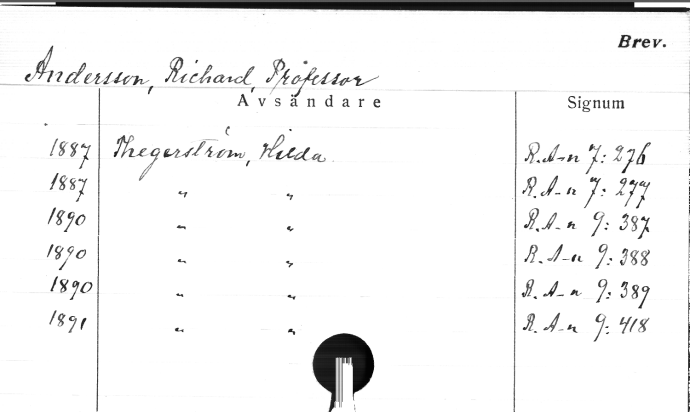 Brev.
Andersson, Richard, Professor
Avsändare Signum
1887 Thegerström, Hilda R.A-n 7: 276
1887 " " R.A-n 7: 277
1890 " " R.A-n 9: 387
1890 " " R.A-n 9: 388
1890 " " R.A-n 9: 389
1891 " " R.A-n 9: 418